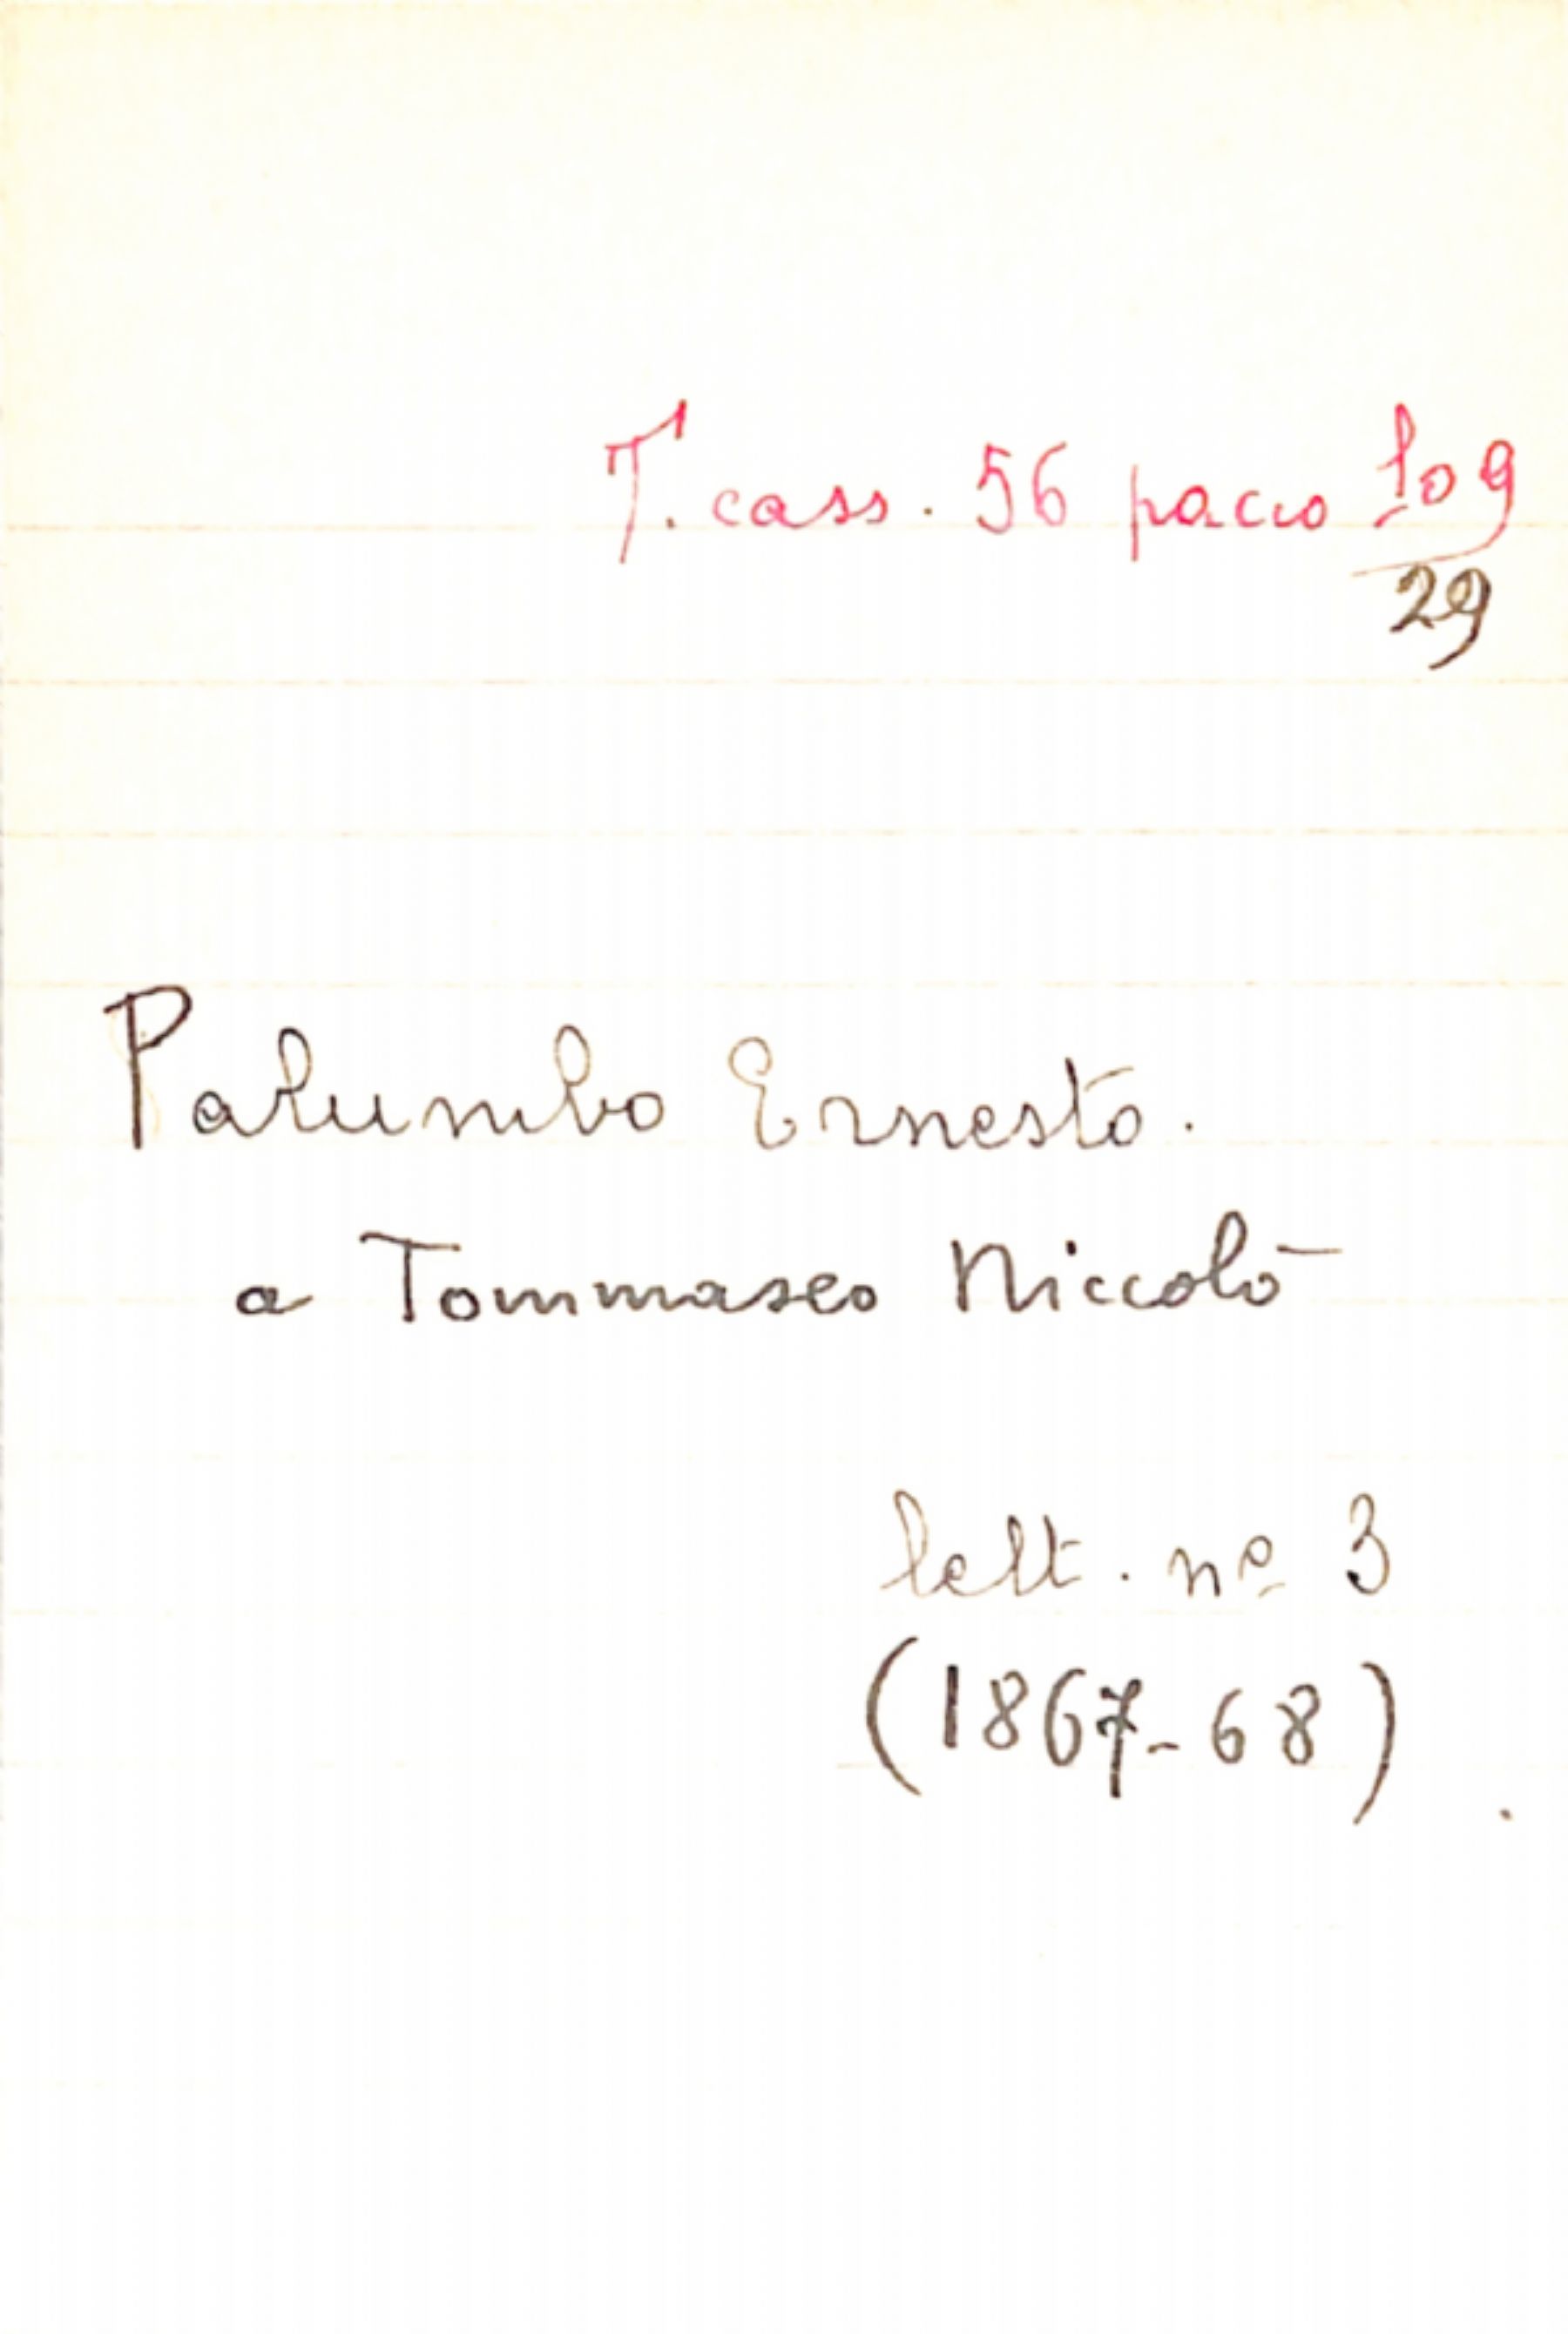 T. cass. 56 pacco 109
29
Palumbo Ernesto.
a Tommaseo Niccolò
lett. nº 3
(1867-68)